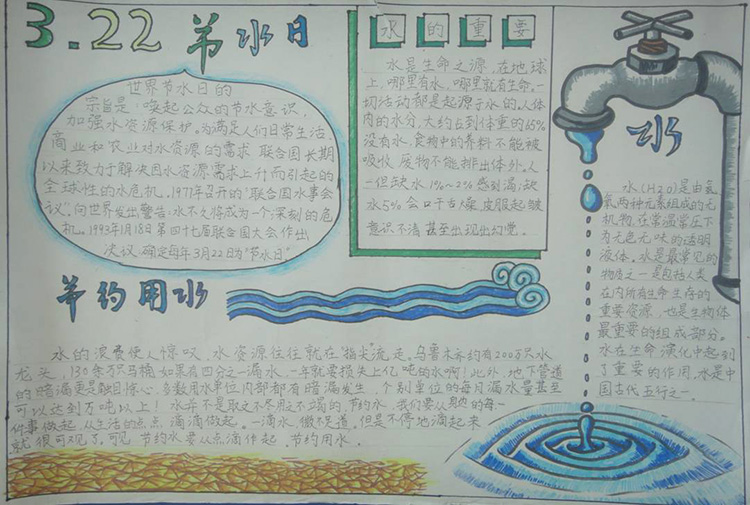 3.22 节水日
世界节水日的
宗旨是：唤起公众的节水意识，
加强水资源保护。为满足人们日常生活、
商业和农业对水资源的需求，联合国长期
以来致力于解决因水资源需求上升而引起的
全球性的水危机。1977年召开的“联合国水事会
议”，向世界发出警告：水不久将成为一个深刻的危
机。1993年1月18日第四十七届联合国大会作出
决议，确定每年3月22日为“节水日”。
水的重要
水是生命之源，在地球
上，哪里有水，哪里就有生命。一
切活动都是起源于水的。人体
内的水分，大约占到体重的65%
没有水，食物中的养料不能被
吸收，废物不能排出体外。人
一但缺水1%～2%感到渴；缺
水5%会口干舌燥，皮肤起皱
意识不清，甚至出现幻觉。
水
水(H2O)是由氢
氧两种元素组成的无
机物，在常温常压下
为无色无味的透明
液体。水是最常见的
物质之一，是包括人类
在内所有生命生存的
重要资源，也是生物体
最重要的组成部分。
水在生命演化中起到
了重要的作用，水是中
国古代五行之一。
节约用水
水的浪费使人惊叹，水资源往往就在“指尖”流走，乌鲁木齐约有200万只水
龙头，130余万只马桶，如果有四分之一漏水，一年就要损失上亿吨的水啊！此外，地下管道
的暗漏更是触目惊心，多数用水单位内部都有暗漏发生，个别单位的每月漏水量甚至
可以达到万吨以上！水并不是取之不尽用之不竭的，节约水，我们要从身边的每一
件事做起，从生活的点点滴滴做起。一滴水，微不足道，但是不停地滴起来
就很可观了，可见，节约水要从点滴作起，节约用水。